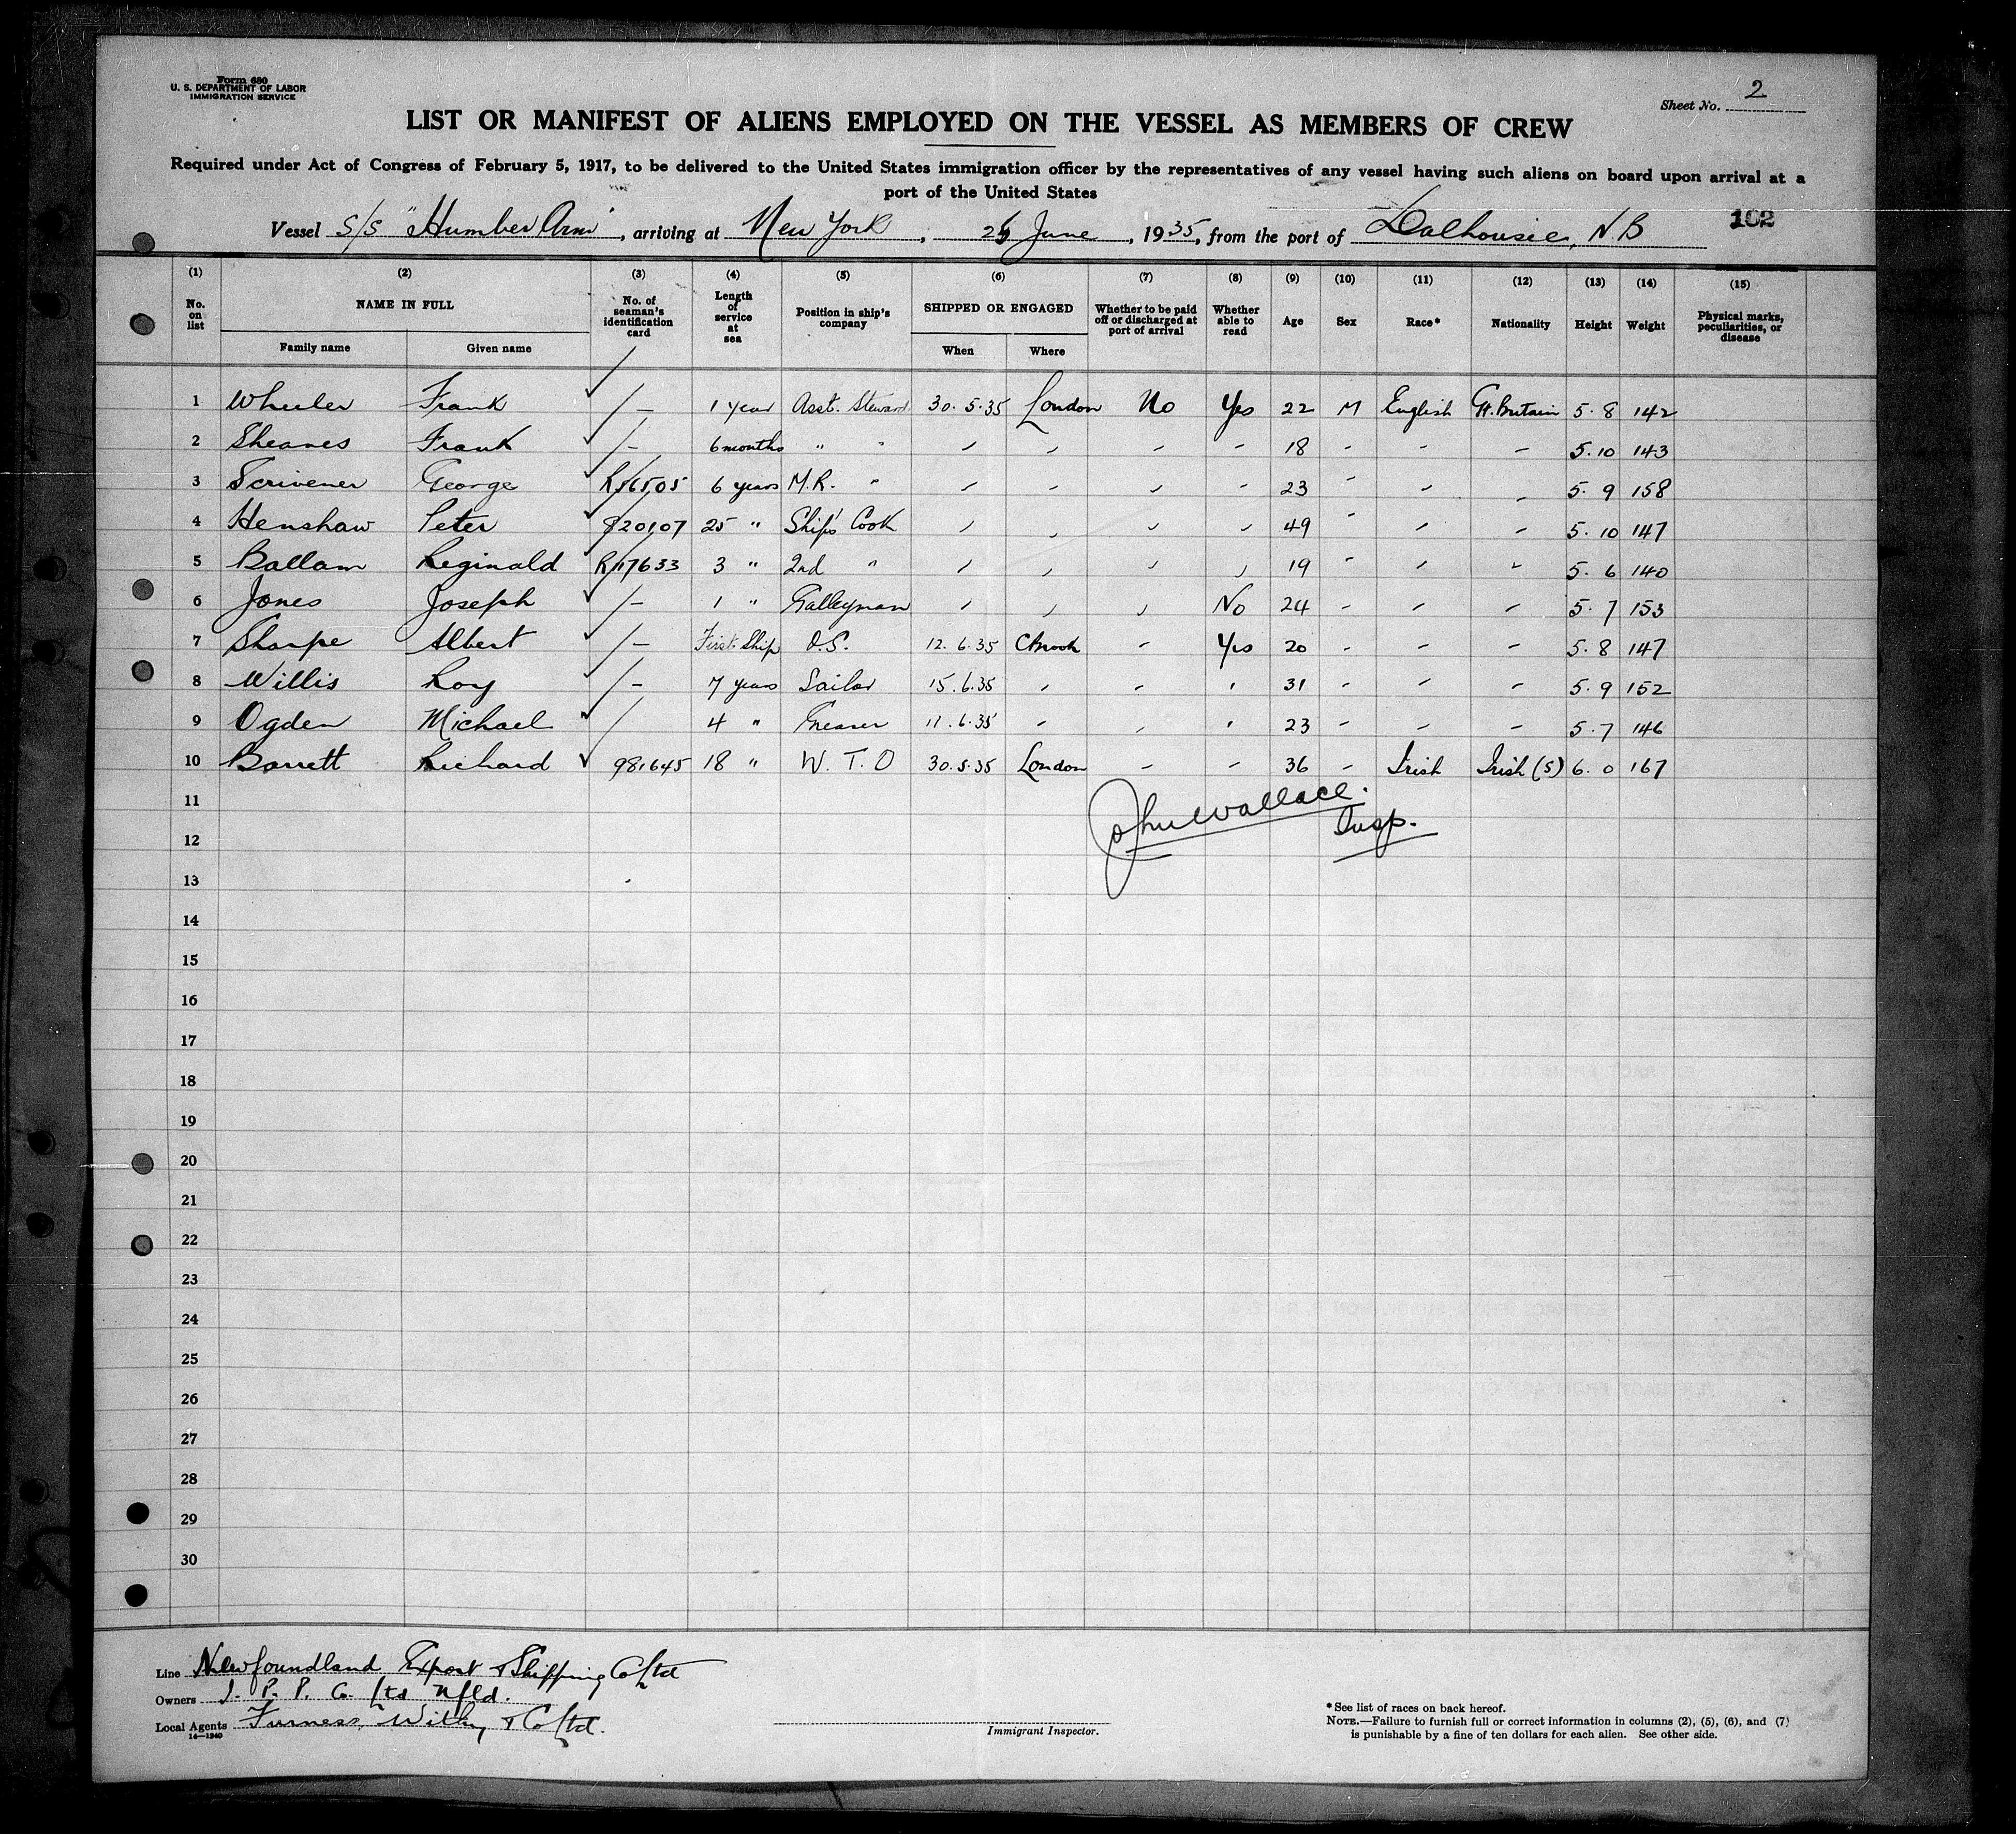 Form 680
U. S. DEPARTMENT OF LABOR
IMMIGRATION SERVICE
Sheet No. 2
LIST OR MANIFEST OF ALIENS EMPLOYED ON THE VESSEL AS MEMBERS OF CREW
Required under Act of Congress of February 5, 1917, to be delivered to the United States immigration officer by the representatives of any vessel having such aliens on board upon arrival at a
port of the United States
102
Vessel S/S "Humber Arm", arriving at New York, 26 June, 1935, from the port of Dalhousie, N.B
(1) (2) (3) (4) (5) (6) (7) (8) (9) (10) (11) (12) (13) (14) (15)
No. on list NAME IN FULL No. of seaman's identification card Length of service at sea Position in ship's company SHIPPED OR ENGAGED Whether to be paid off or discharged at port of arrival Whether able to read Age Sex Race* Nationality Height Weight Physical marks, peculiarities, or disease
Family name Given name When Where
1 Wheeler Frank ✓ /— 1 year Asst. Steward 30.5.35 London No Yes 22 M English Gt. Britain 5.8 142
2 Sheanes Frank ✓ /— 6 months " " - - - - 18 - - - 5.10 143
3 Scrivener George ✓ 6 years M.R. " - - - - 23 - - - 5.9 158
4 Henshaw Peter ✓ 25 " Ship's Cook - - - - 49 - - - 5.10 147
5 Ballam Reginald ✓ R/17633 3 " 2nd " - - - - 19 - - - 5.6 140
6 Jones Joseph ✓ /— 1 " Galleyman - - - No 24 - - - 5.7 153
7 Sharpe Albert ✓ /— First Ship O.S. 12.6.35 CBrook - Yes 20 - - - 5.8 147
8 Willis Roy ✓ /— 7 years Sailor 15.6.35 - - - 31 - - - 5.9 152
9 Ogden Michael ✓ / 4 " Greaser 11.6.35 - - - 23 - - - 5.7 146
10 Barrett Richard ✓ 981645 18 " W.T.O 30.5.35 London - - 36 - Irish Irish (S) 6.0 167
11
John Wallace.
12
Insp.
13
14
15
16
17
18
19
20
21
22
23
24
25
26
27
28
29
30
Line Newfoundland Export & Shipping Co Ltd
Owners I. P. P. Co. Ltd Nfld.
Local Agents Furness, Withy & Co Ltd.
14—1240
Immigrant Inspector.
* See list of races on back hereof.
NOTE.—Failure to furnish full or correct information in columns (2), (5), (6), and (7)
is punishable by a fine of ten dollars for each alien. See other side.